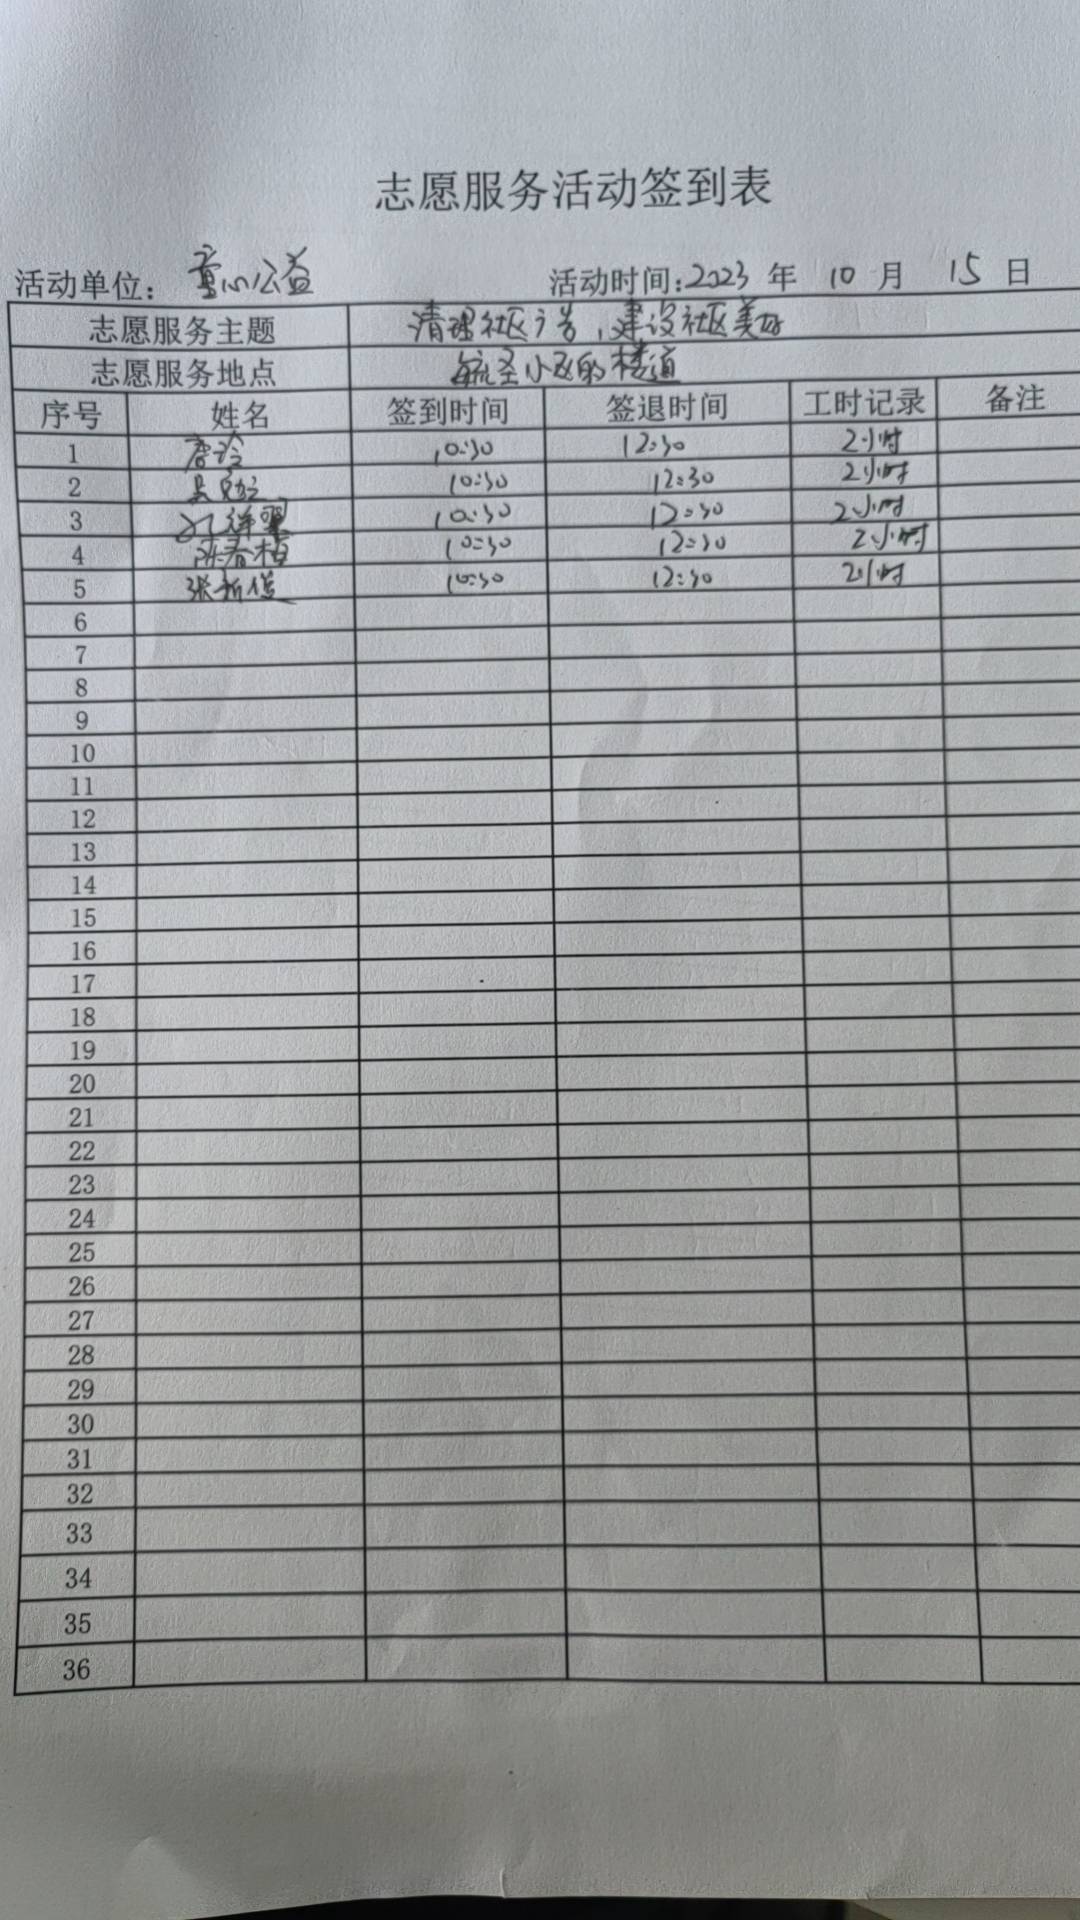 志愿服务活动签到表
活动单位：童心公益 活动时间：2023 年 10 月 15 日
志愿服务主题 清理社区广告，建设社区美好
志愿服务地点 航圣小区的楼道
序号 姓名 签到时间 签退时间 工时记录 备注
1 唐玲 10:30 12:30 2小时
2 10:30 12:30 2小时
3 10:30 12:30 2小时
4 陈春梅 10:30 12:30 2小时
5 张新俊 10:30 12:30 2小时
6
7
8
9
10
11
12
13
14
15
16
17
18
19
20
21
22
23
24
25
26
27
28
29
30
31
32
33
34
35
36